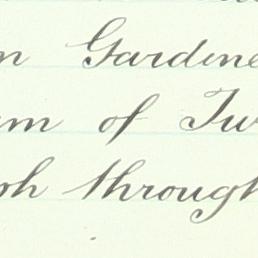 n Gardine
um of Tw
ph through